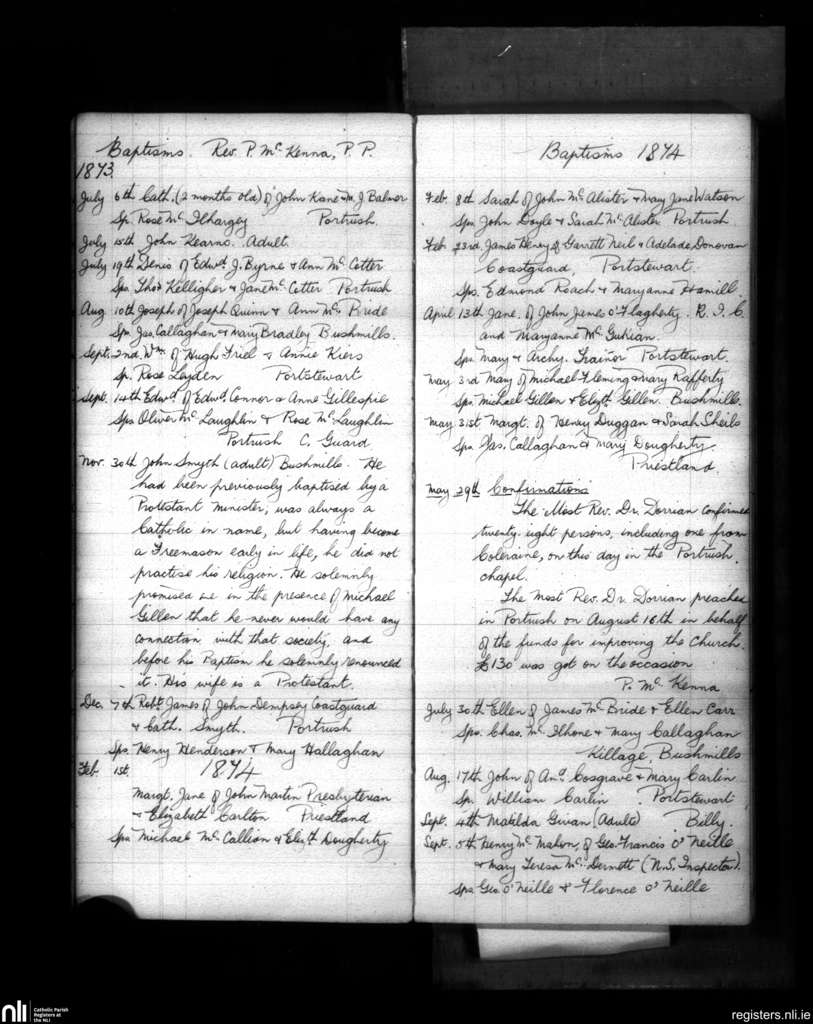 Baptisms. Rev. P. Mc Kenna, P. P.
1873
July 6th Cath. (2 months old) of John Kane & M. J Balmer
Sp. Rose Mc Ilhargey Portrush.
July 15th John Kearns. Adult.
July 19th Denis of Edwd. J. Byrne & Ann Mc Cotter
Sps. Thos Kelligher & Jane Mc Cotter Portrush
Aug 10th Joseph of Joseph Quinn & Ann Mc Bride
Sps. Jas. Callaghan & Mary Bradley Bushmills.
Sept. 2nd. Wm. of Hugh Friel & Annie Kiers
Sp. Rose Leyden Portstewart
Sept. 14th Edwd. of Edwd. Connor & Anne Gillespie
Sps Oliver Mc Laughlin & Rose Mc Laughlin
Portrush C. Guard.
Nov. 30th John Smyth (adult) Bushmills. He
had been previously baptised by a
Protestant minister, was always a
Catholic in name, but having become
a Freemason early in life, he did not
practise his religion. He solemnly
promised me in the presence of Michael
Gillen that he never would have any
connection with that society. and
before his Baptism he solemnly renounced
it. His wife is a Protestant.
Dec. 7th Robt. James of John Dempsey Coastguard
& Cath. Smyth. Portrush
Sps. Henry Henderson & Mary Hallaghan
Feb. 1st. 1874
Margt. Jane of John Martin Presbyterian
& Elizabeth Carlton Priestland
Sps Michael Mc Callion & Elizth Dougherty
Baptisms 1874
Feb. 8th Sarah of John Mc Alister & Mary Jane Watson
Sps. John Doyle & Sarah Mc Alister Portrush
Feb 23rd James Henry of Garrett Neil & Adelade Donovan
Coastguard, Portstewart.
Sps. Edmond Roach & Maryanne Hamill.
April 13th Jane. of John James O'Flagherty. R. I. C
and Maryanne Mc Guckian.
Sps. Mary & Archy. Trainor Portstewart.
May 3rd Mary of Michael Fleming & Mary Rafferty
Sps. Michael Gillen & Elizth Gillen. Bushmills.
May 31st Margt. of Henry Duggan & Sarah Sheils
Sps. Jas. Callaghan & Mary Dougherty
Priestland.
May 29th Confirmations
The Most Rev. Dr. Dorrian confirmed
twenty. eight persons, including one from
Coleraine, on this day in the Portrush
chapel.
The Most Rev. Dr. Dorrian preached
in Portrush on August 16th in behalf
of the funds for improving the Church.
£130 was got on the occasion
P. Mc Kenna
July 30th Ellen of James Mc Bride & Ellen Carr
Sps. Chas. Mc Ilhone & Mary Callaghan
Killage, Bushmills
Aug. 17th John of And. Cosgrave & Mary Carlin
Sp. William Carlin Portstewart
Sept. 4th Matilda Givan (Adult) Billy.
Sept. 5th Henry Mc Mahon, of Geo. Francis O'Neille
& Mary Teresa Mc Dermott (N.S. Inspector).
Sps Geo. O'Neille & Florence O'Neille
nli Catholic Parish
Registers at
the NLI
registers.nli.ie